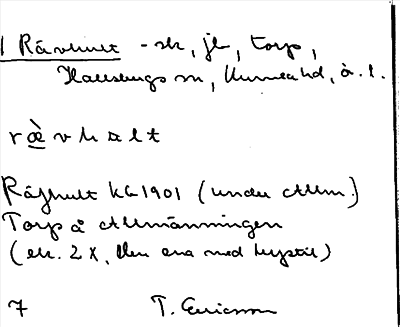 Rävhult - sk, jl, torp,
Hallsbergs sn, Kumla hd, ö. l.
ræ̀vhult
Räfhult KA 1901 (under Allm.)
Torp å Allmänningen
(ek. 2 X, den ena med
7 T. Ericsson